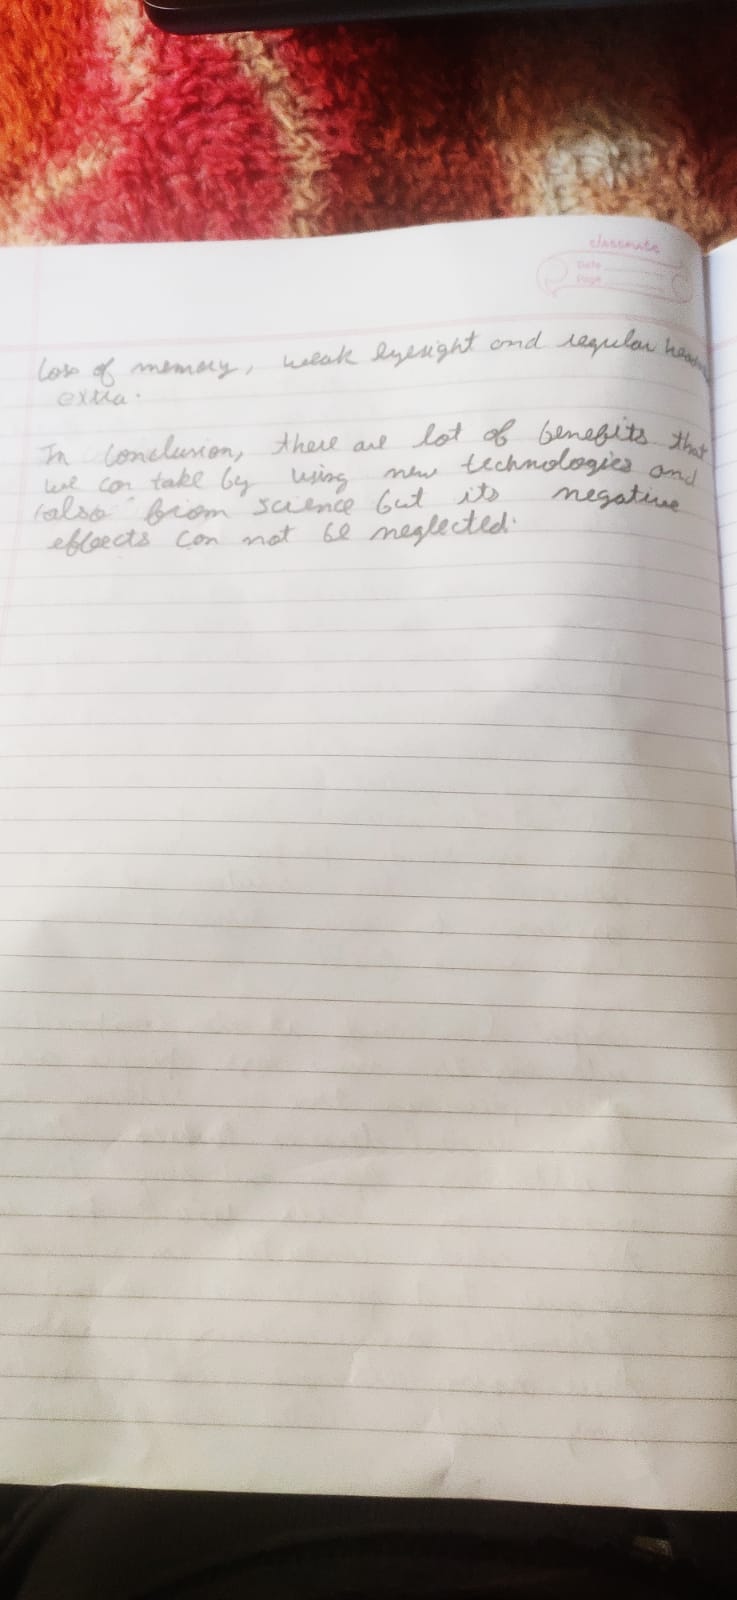 classmate
Date
Page
loss of memory, weak eyesight and regular
extra.
In conclusion, there are lot of benefits that
we can take by using new technologies and
also from science but its negative
effects can not be neglected.